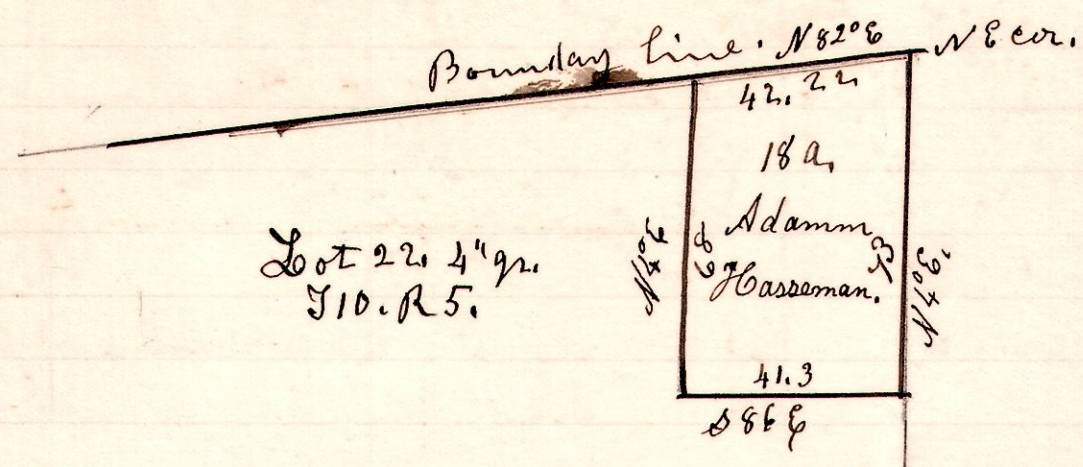 Boundary line. N82°E N E cor.
42.22
18 a.
Adamm
Hasseman.
Lot 22. 4" qr.
T10. R 5.
N4°E
N4°E
41.3
S 86 E